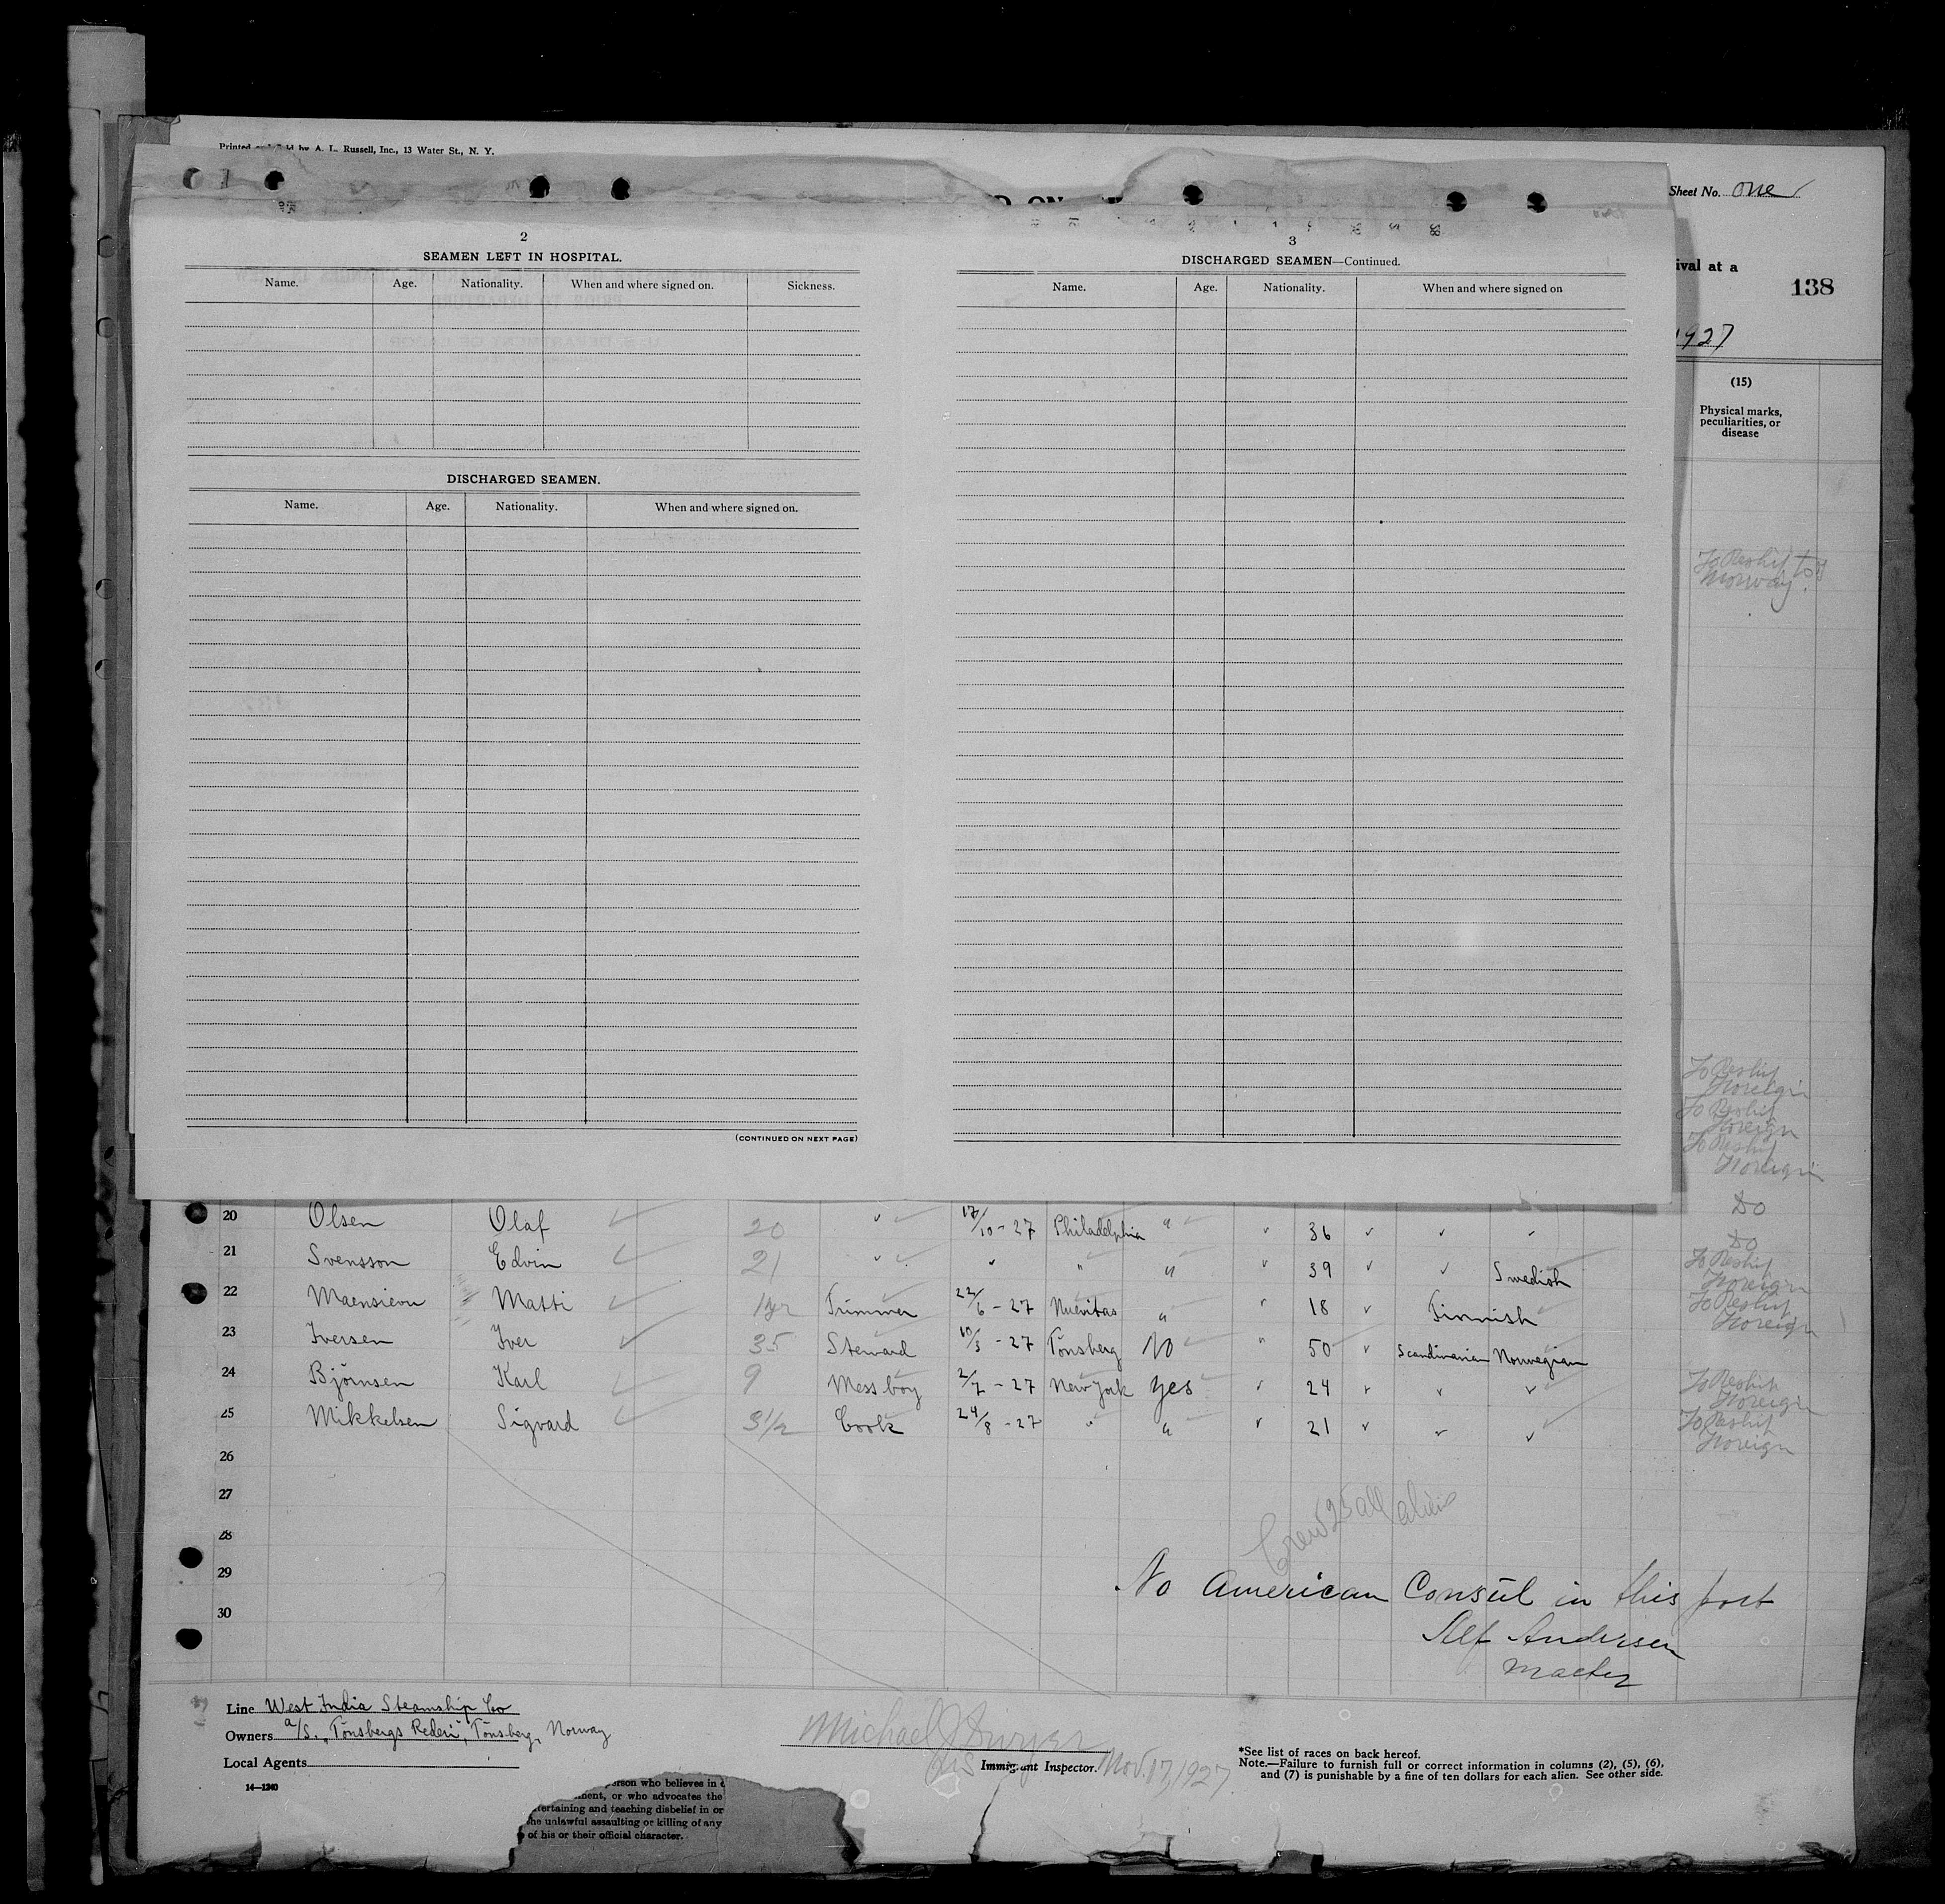 Printed and Sold by A. L. Russell, Inc., 13 Water St., N. Y.
Sheet No. One
D ON
ival at a
138
1927
(15)
Physical marks, peculiarities, or disease
To Reship to Norway.
2
SEAMEN LEFT IN HOSPITAL.
Name. Age. Nationality. When and where signed on. Sickness.
DISCHARGED SEAMEN.
Name. Age. Nationality. When and where signed on.
(CONTINUED ON NEXT PAGE)
3
DISCHARGED SEAMEN—Continued.
Name. Age. Nationality. When and where signed on
To Reship Foreign
To Reship Foreign
To Reship Foreign
20 Olsen Olaf 20 " 17/10-27 Philadelphia " " 36 " " " Do
21 Svensson Edvin 21 " " " " " 39 " " Swedish Do
22 Maensieon Matti Trimmer 22/6-27 Nuevitas " " 18 " Finnish To Reship Foreign
23 Iversen Iver 35 Steward 10/3-27 Tönsberg No " 50 " Scandinavian Norwegian To Reship Foreign
24 Björnsen Karl 9 Mess boy 2/7-27 New York Yes " 24 " " " To Reship Foreign
25 Mikkelsen Sigvard 3 1/2 Cook 24/8-27 " " " 21 " " " To Reship Foreign
26
27
28
29
30
Crew 25 all aliens
No American Consul in this port
Alf Andersen
Master
Line West India Steamship Co
Owners a/S. "Tönsbergs Rederi", Tönsberg, Norway
Local Agents
14—1240
Michael J Dwyer
Immigrant Inspector. Nov. 17, 1927
*See list of races on back hereof.
Note.—Failure to furnish full or correct information in columns (2), (5), (6),
and (7) is punishable by a fine of ten dollars for each alien. See other side.
erson who believes in
ment, or who advocates the
tertaining and teaching disbelief in or
he unlawful assaulting or killing of any
of his or their official character.